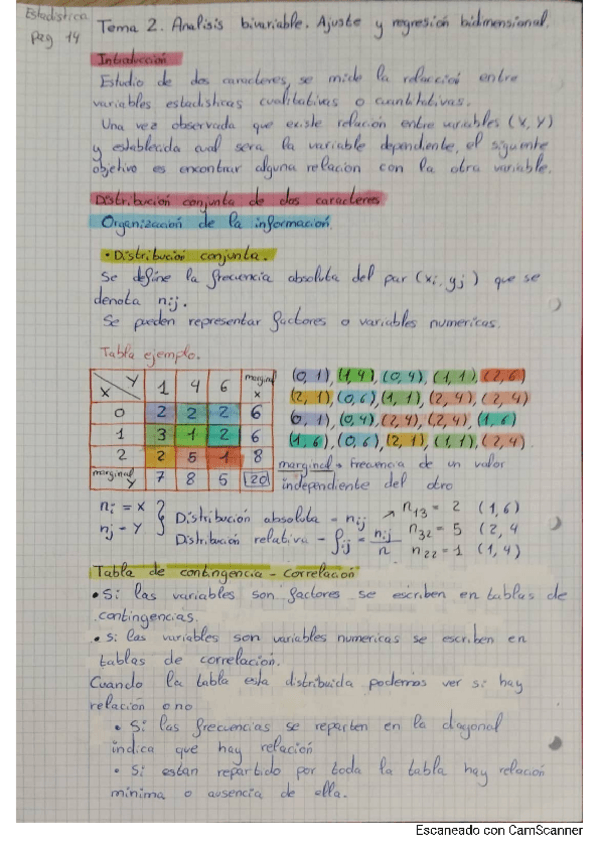 Estadistica
pag 14
Tema 2. Analisis bivariable. Ajuste y regresión bidimensional.
Introducción
Estudio de dos caracteres, se mide la relacció entre
variables estadisticas cualitativas o cuantitativas.
Una vez observada que existe relación entre variables (X, Y)
y establecida cual sera la variable dependiente, el siguiente
objetivo es encontrar alguna relacion con la otra variable.
Distribución conjunta de dos caracteres
Organización de la informacion.
• Distribución conjunta.
Se define la frecuencia absoluta del par (xi, yj) que se
denota nij.
Se pueden representar factores o variables numericas.
Tabla ejemplo.
X Y 1 4 6 marginal x
0 2 2 2 6
1 3 1 2 6
2 2 5 1 8
marginal Y 7 8 5 20
(0, 1), (1, 4), (0, 4), (1, 1), (2, 6)
(2, 1), (0, 6), (1, 1), (2, 4), (2, 4)
(0, 1), (0, 4), (2, 4), (2, 4), (1, 6)
(1, 6), (0, 6), (2, 1), (1, 1), (2, 4)
marginal → Frecuencia de un valor
independiente del otro
ni = X
nj - Y } Distribución absoluta - nij
Distribución relativa - fij = nij/n
→ n13 = 2 (1, 6)
n32 = 5 (2, 4
n22 = 1 (1, 4)
Tabla de contingencia - correlación
• Si las variables son factores se escriben en tablas de
contingencias.
• Si las variables son variables numericas se escriben en
tablas de correlación.
Cuando la tabla esta distribuida podemos ver si hay
relación o no
• Si las frecuencias se reparten en la diagonal
indica que hay relación
• Si estan repartido por toda la tabla hay relación
minima o ausencia de ella.
Escaneado con CamScanner